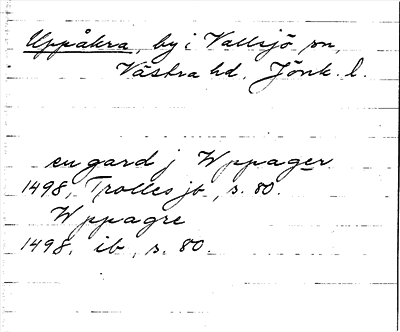 Uppåkra, by i Vallsjö sn,
Västra hd. Jönk. l.
en gard j Wppager
1498, Trolles jb, s. 80.
Wppagre
1498, ib, s. 80.